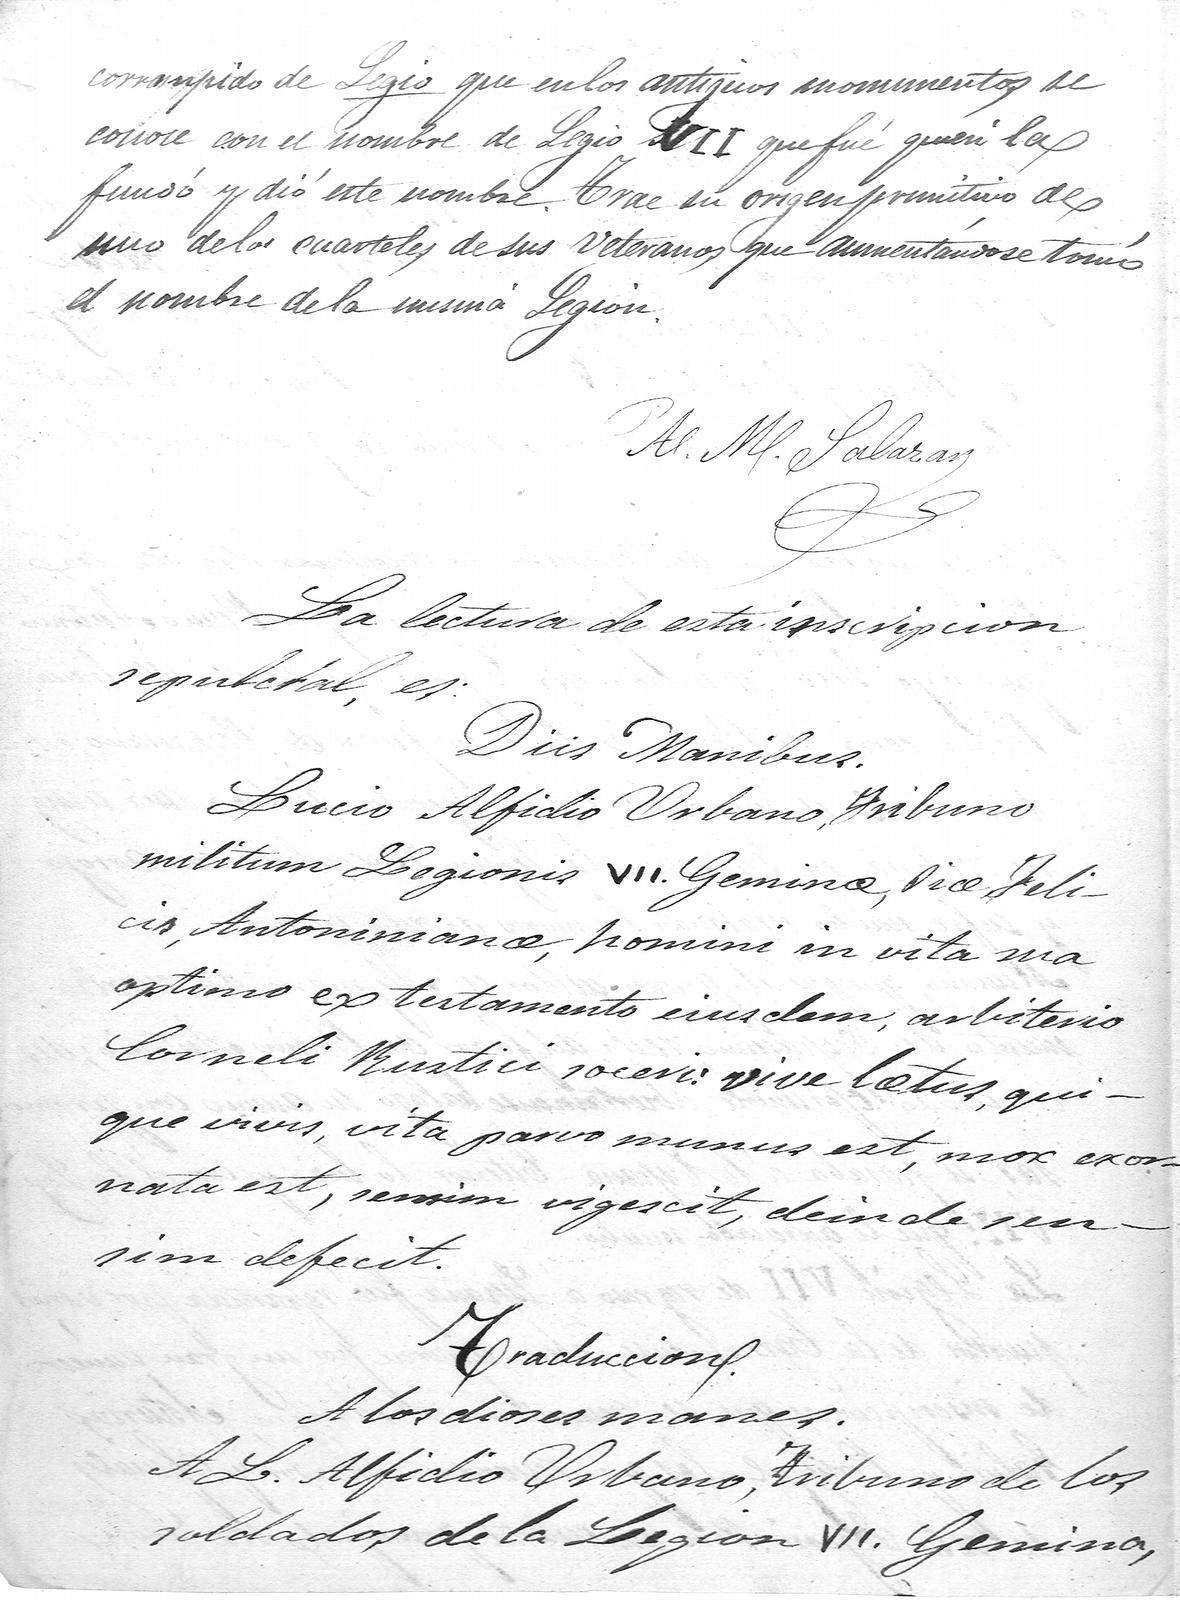 corrompido de Legio que en los antiguos monumentos se
conoce con el nombre de Legio VII que fué quien la
fundó y dió este nombre. Trae su origen primitivo de
uno de los cuarteles de sus Veteranos que aumentándose tomó
el nombre de la misma Legión.
M. Salazar
La lectura de esta inscripcion
sepulcral, es:
Diis Manibus.
Lucio Alfidio Urbano, Tribuno
militum Legionis VII. Geminæ, Piæ Feli-
cis, Antoninianæ, homini in vita sua
optimo ex testamento eiusdem, arbiterio
Corneli Rustici soceri: vive lætus, qui-
que vivis, vita parvo munus est, mox exor-
nata est, sensim vigescit, deinde sen-
sim defecit.
Traduccion.
A los dioses manes.
A L. Alfidio Urbano, Tribuno de los
soldados de la Legion VII. Gemina,